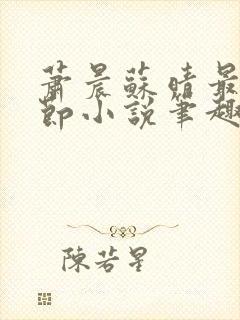 蕭晨蘇晴最
節小說筆趣
陳若星